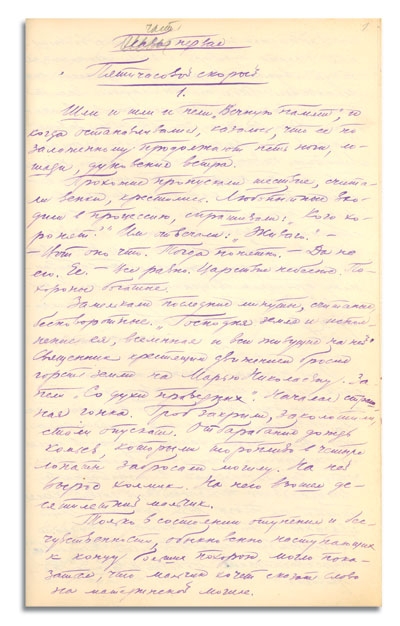 часть
первая
1
Пятичасовой скорый
1.
Шли и шли и пели „Вечную память", и
когда останавливались, казалось, что ее по
залаженному продолжают петь ноги, ло-
шади, дуновения ветра.
Прохожие пропускали шествие, счита-
ли венки, крестились. Любопытные вхо-
дили в процессию, спрашивали: „Кого хо-
ронят?" Им отвечали: „Живаго". –
– Вот оно что. Тогда понятно. – Да не
его. Ее. – Все равно. Царствие небесное. По-
хороны богатые.
Замелькали последние минуты, считанные,
бесповоротные. „Господня земля и испол-
нение ея, вселенная и вси живущие на ней".
Священник крестящим движением бросил
горсть земли на Марью Николаевну. За-
пели „Со духи праведных". Началась страш-
ная гонка. Гроб закрыли, заколотили,
стали опускать. Отбарабанил дождь
комьев, которыми торопливо в четыре
лопаты забросали могилу. На ней
вырос холмик. На него взошел де-
сятилетний мальчик.
Только в состоянии отупения и бес-
чувственности, обыкновенно наступающих
к концу больших похорон, могло пока-
заться, что мальчик хочет сказать слово
на материнской могиле.